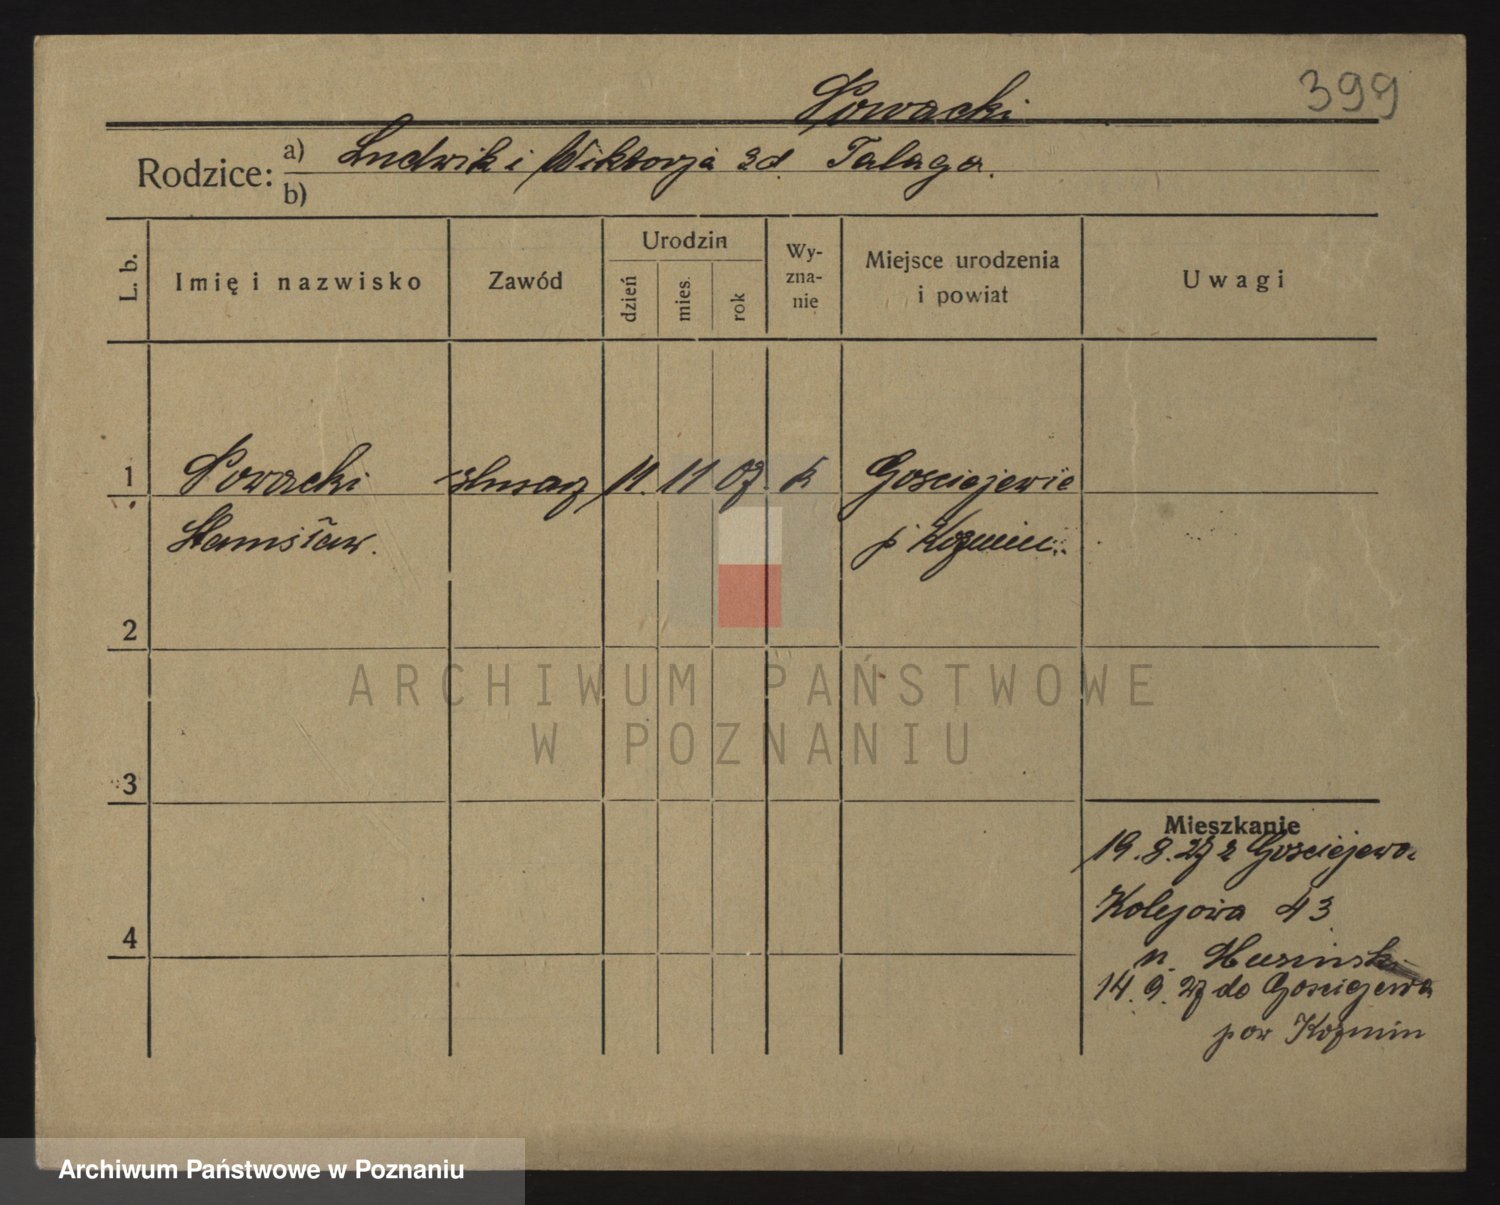 399
Sowacki
Rodzice: a) Ludwik i Wiktorja zd. Talaga.
b)
L. b.
Imię i nazwisko
Zawód
Urodzin
dzień
mies.
rok
Wy-
zna-
nie
Miejsce urodzenia
i powiat
Uwagi
1 Sowacki 11. 11 07 k Gosciejewie
Stanisław. p. Kozmin
2
3
4
Mieszkanie
19.8.27 z Gosciejewa
Kolejowa 43
n.
14.9.27 do Gosciejewa
pow Kozmin
ARCHIWUM PAŃSTWOWE
W POZNANIU
Archiwum Państwowe w Poznaniu